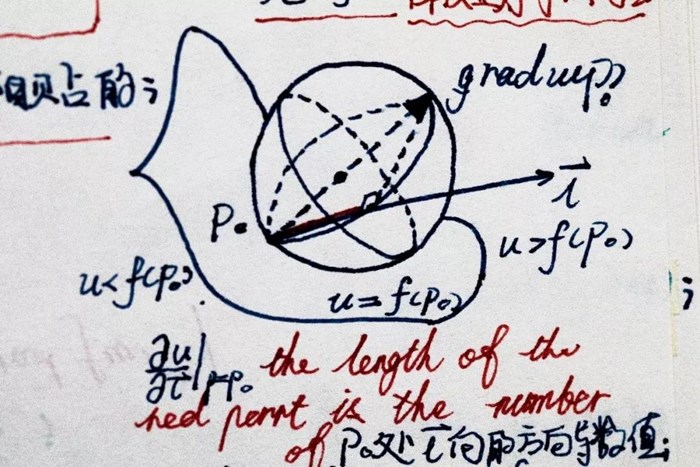 占的;
grad u(p₀)
P₀
l⃗
u>f(p₀)
u<f(p₀)
u=f(p₀)
;
∂u/∂l⃗|p=p₀ the length of the
red part is the number
of P₀处l⃗向的方向导数值;